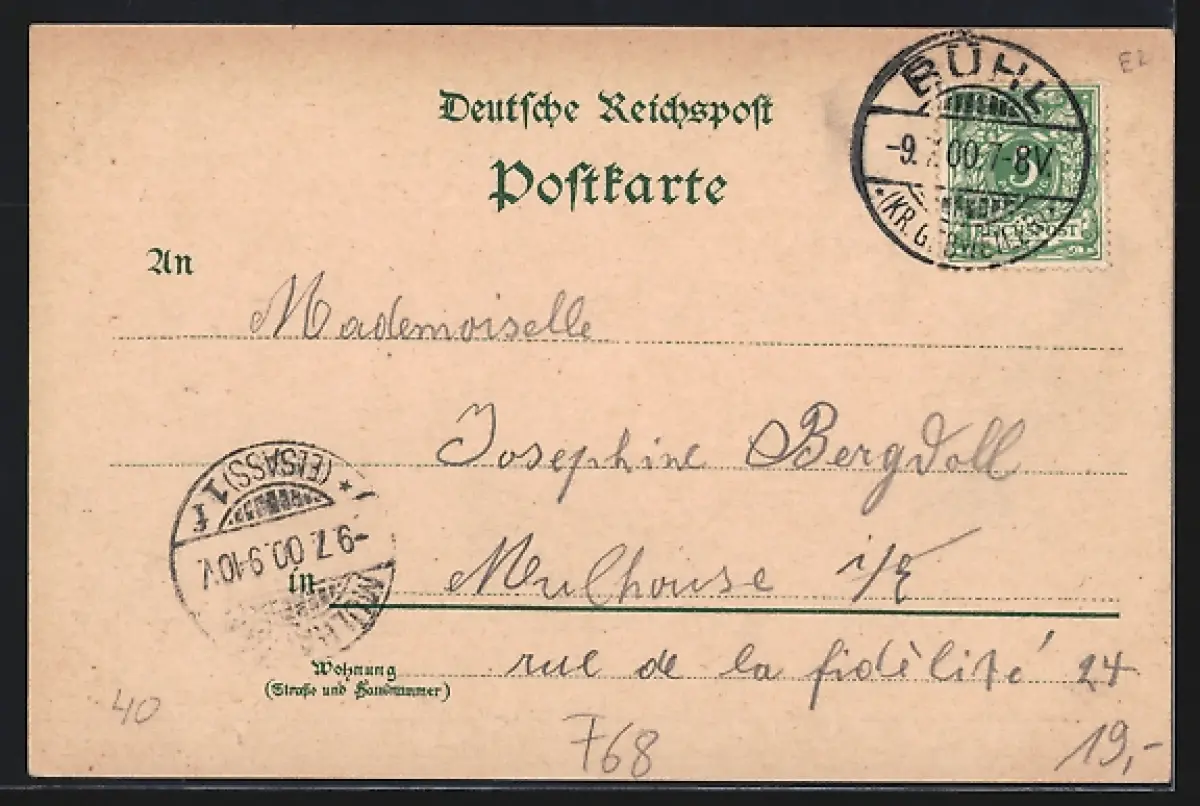 E2
BÜHL
-9.7.00.7-8V.
*(KR. GEBWEILER)*
5
REICHSPOST
Deutsche Reichspost
Postkarte
An
Mademoiselle
Josephine Bergdoll
(ELSASS) 1 f *
-9.7.00.9-10V.
in Mulhouse i/E
Wohnung
(Straße und Hausnummer)
rue de la fidèlité 24
40
F68
19,-